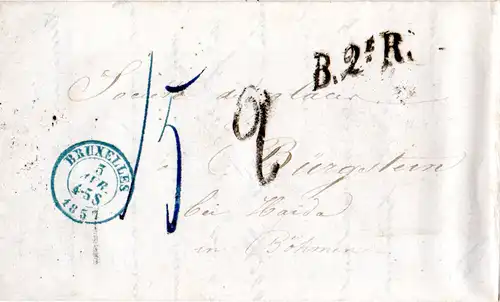 B. 2ᵗ R.
Société
15
2
Bürgstein
bei Haida
in Böhmen
BRUXELLES
3
4-5S
1857